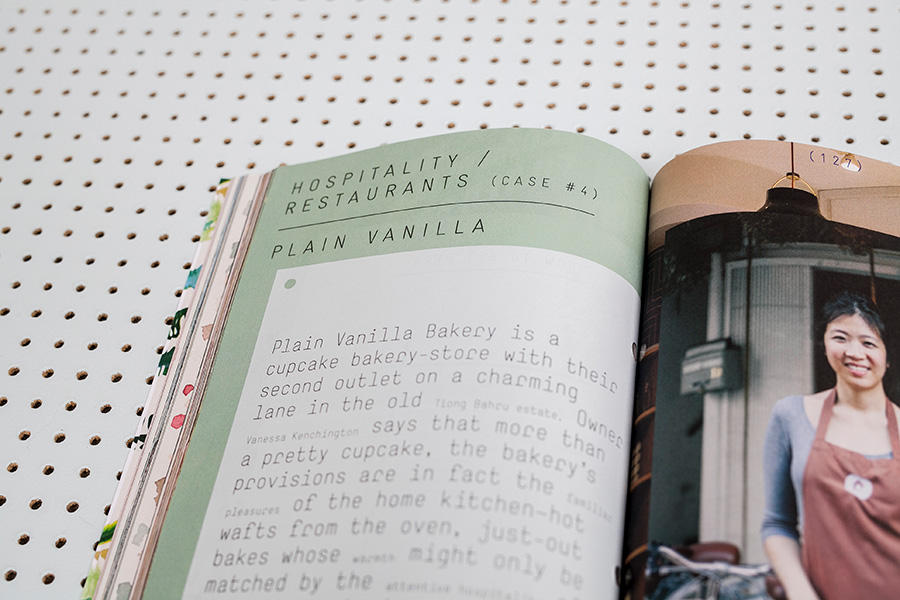 HOSPITALITY /
RESTAURANTS (CASE #4)
PLAIN VANILLA
Plain Vanilla Bakery is a
cupcake bakery-store with their
second outlet on a charming
lane in the old Tiong Bahru estate. Owner
Vanessa Kenchington says that more than
a pretty cupcake, the bakery's
provisions are in fact the familiar
pleasures of the home kitchen-hot
wafts from the oven, just-out
bakes whose warmth might only be
matched by the attentive hospitality of
(127)